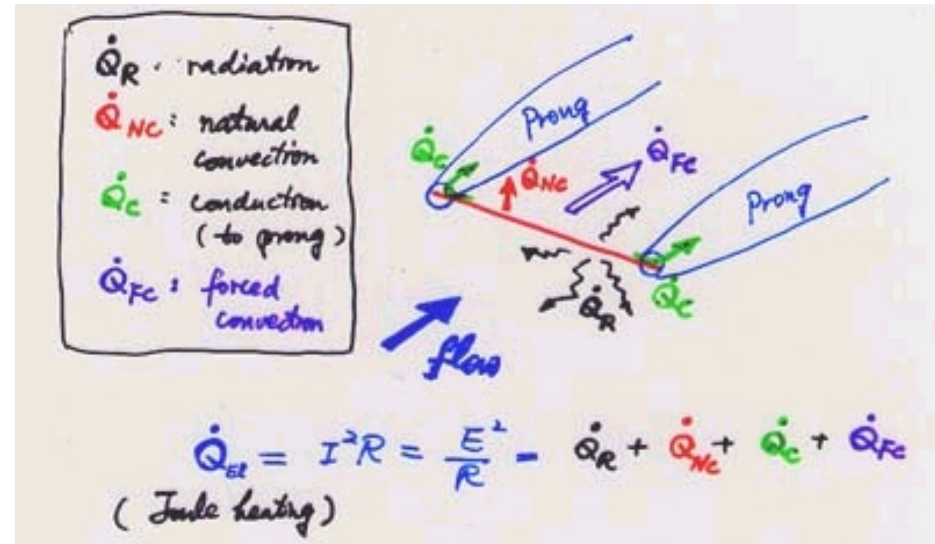 Q̇R : radiation
Q̇NC : natural
convection
Q̇C : conduction
(to prong)
Q̇FC : forced
convection
Prong
Prong
Q̇C
Q̇NC
Q̇FC
Q̇C
Q̇R
flow
Q̇El = I²R = E²/R = Q̇R + Q̇NC + Q̇C + Q̇FC
(Joule heating)